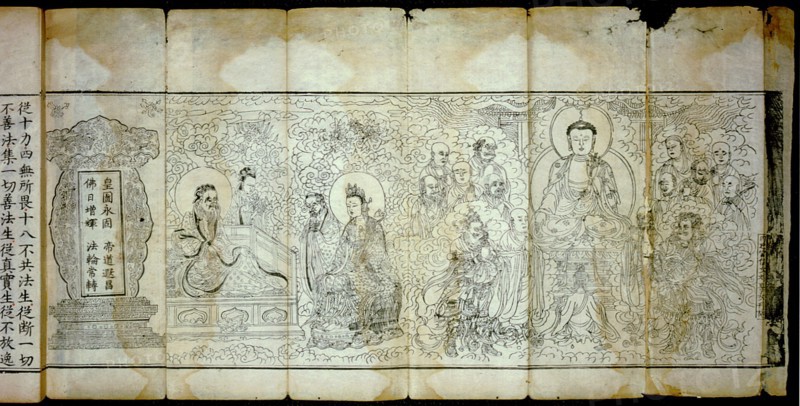 皇圖永固 帝道遐昌
佛日增輝 法輪常轉
從十力四無所畏十八不共法生從断一切
不善法集一切善法生從真實生從不放逸